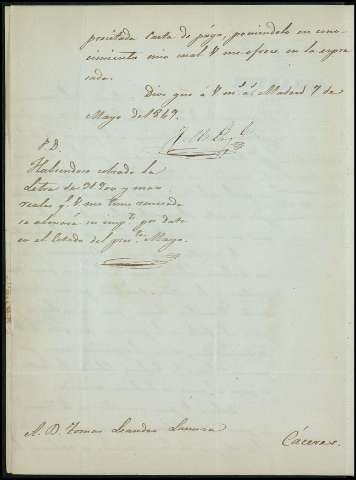 precitada Carta de pago, poniendolo en cono-
cimiento mio cual V me ofrece en la expre
sada.
Dios gue á V m.s a.s Madrid 7 de
Mayo de 1867.
P D.
Habiendose cobrado la
Letra de
reales q.e V me tiene remesada
se servirá su imp.te por data
en el Estado del pres.te Mayo.
A. D. Tomas Leandro
Cáceres.